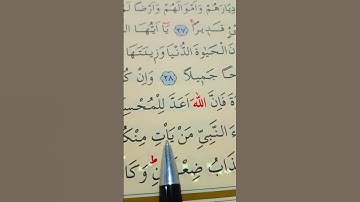 دِيَارَهُمْ وَاَمْوَالَهُمْ وَاَرْضًا لَمْ
قَد۪يرًا ﴿٢٧﴾ يَٓا اَيُّهَا
نَ الْحَيٰوةَ الدُّنْيَا وَز۪ينَتَهَا
حًا جَم۪يلًا ﴿٢٨﴾ وَاِنْ كُ
ةَ فَاِنَّ اللّٰهَ اَعَدَّ لِلْمُحْسِ
ءَ النَّبِيِّ مَنْ يَأْتِ مِنْكُ
ذَابُ وَكَا